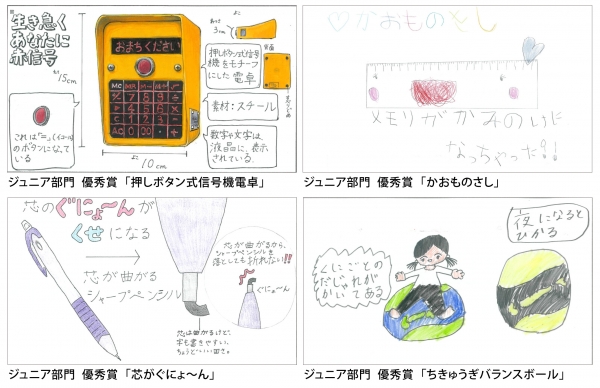 生き急ぐ
あなたに
赤信号
たて
15cm
おまちください
はば
3cm
押しボタン式信号
機をモチーフ
にした 電卓
素材:スチール
数字や文字は、
液晶に、表示
されている。
これは「=」(イコール)
のボタンになって
いる
10cm
ジュニア部門 優秀賞 「押しボタン式信号機電卓」
♡かおものさし
メモリがかみのいに
なっちゃった?!
ジュニア部門 優秀賞 「かおものさし」
芯のぐにょ〜んが
くせになる
芯が曲がる
シャープペンシル
芯が曲がるから、
シャープペンシルを
落としても折れない!!
ぐにょ〜ん
芯は曲がるけど、
字も書きやすい、
ちょうどいい固さ。
ジュニア部門 優秀賞 「芯がぐにょ〜ん」
夜になると
ひかる
くにごとの
だしゃれが
かいてある
ジュニア部門 優秀賞 「ちきゅうぎバランスボール」